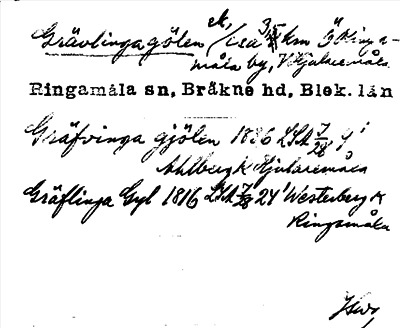 Grävlingagölen ek, / ca 3,5 km Ö Ringa-
måla by, V Hjularemåla
Ringamåla sn, Bräkne hd, Blek. län
Gräfvinga gjölen 1886 LSA 7/28 9'
Ahlberg k Hjularemåla
Gräflinga Gyl 1816 LSA 7/28 24' Westerberg k
Ringamåla